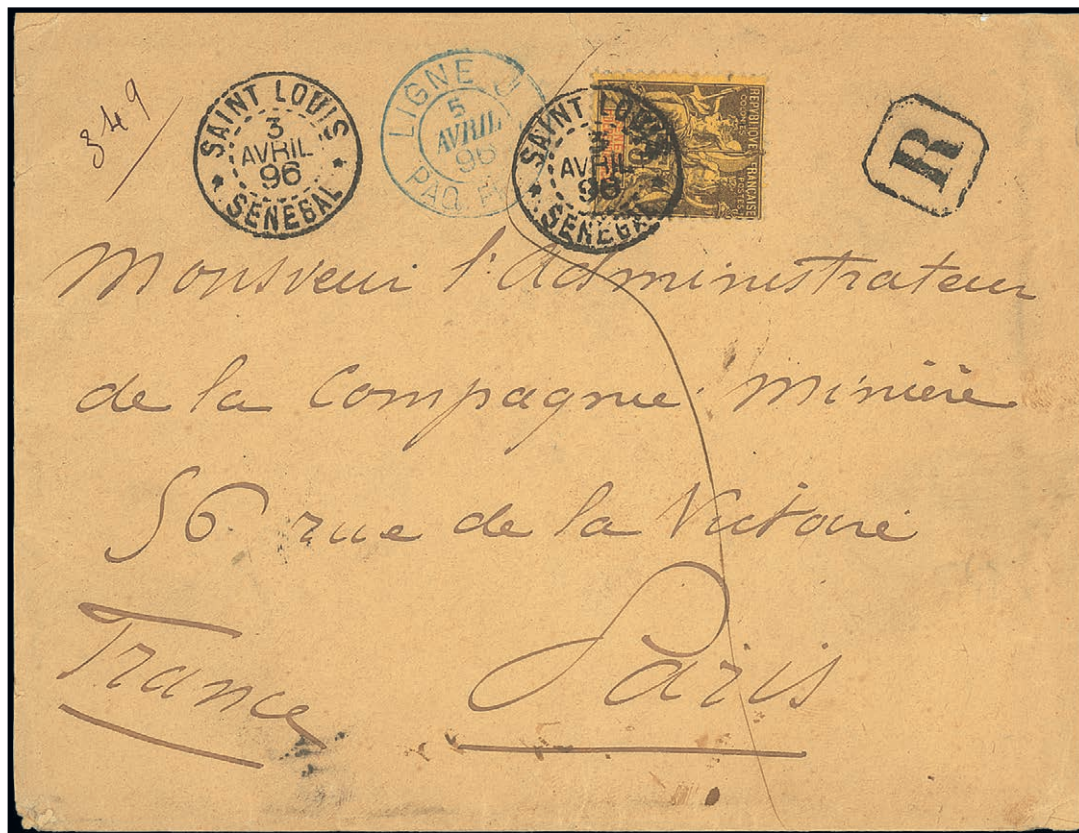 349
SAINT LOUIS
3
AVRIL
96
SENEGAL
LIGNE J
5
AVRIL
96
PAQ. F
SAINT LOUIS
3
AVRIL
96
SENEGAL
REPUBLIQUE FRANÇAISE
COLONIES POSTES
R
Monsieur l'Administrateur
de la Compagnie Minière
56 rue de la Victoire
Paris
France